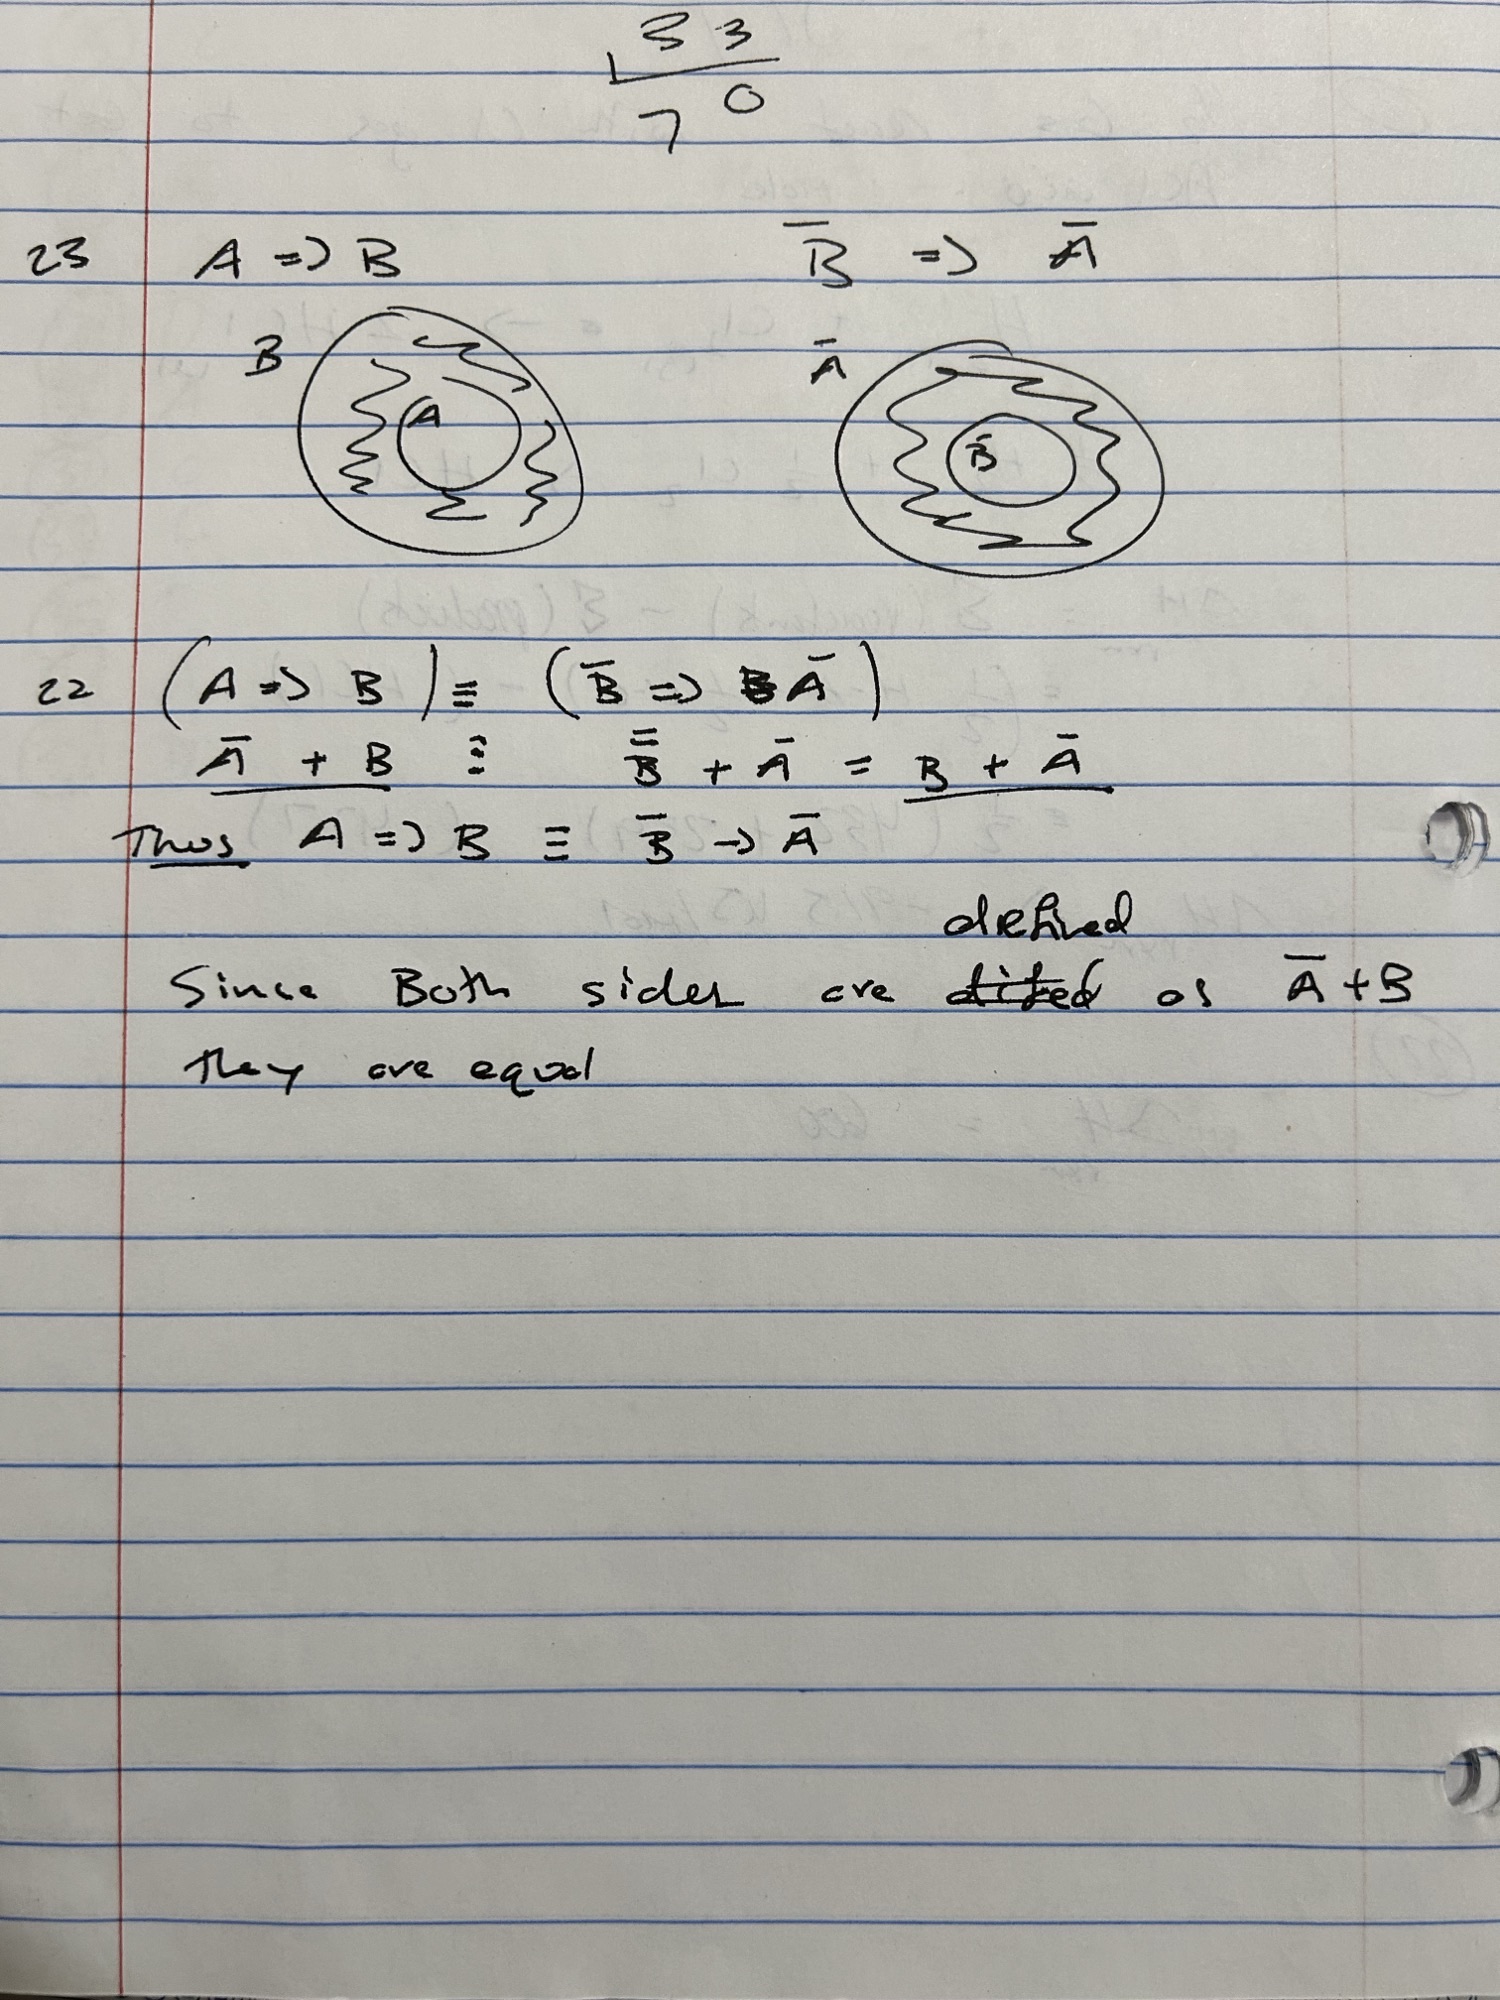 33
70
23 A => B B̅ => A̅
B A A̅ B̅
22 (A => B) ≡ (B̅ => A̅)
A̅ + B ≡ B̿ + A̅ = B + A̅
Thus A => B ≡ B̅ -> A̅
defined
Since Both sides are as A̅ + B
they are equal